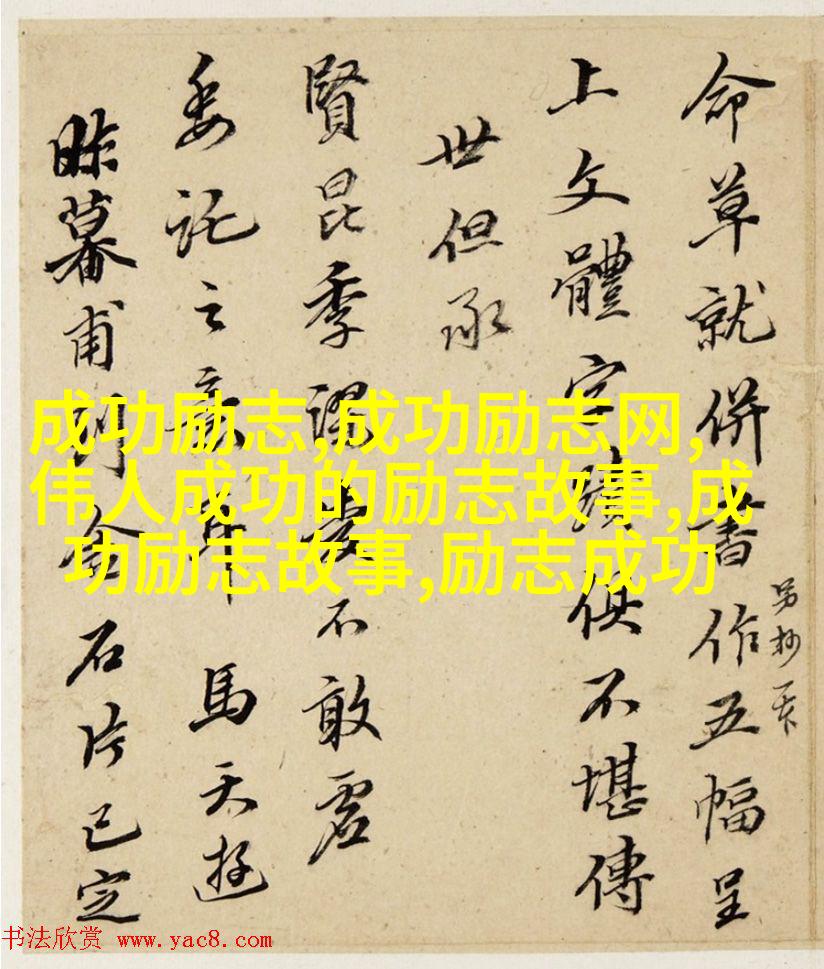 命草就併書作五幅呈
另抄一本
上文體字蹟俱不堪傳
世但承
賢昆季謬愛不敢虛
委託之意耳馬天游
眎摹甫刊金石片已定
成功励志,成功励志网,
伟人成功的励志故事,成
功励志故事,励志成功
书法欣赏 www.yac8.com